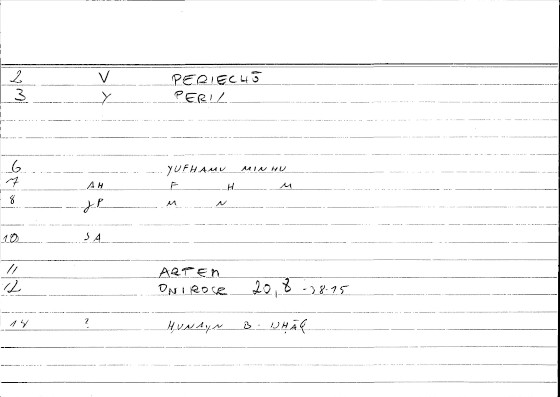 2 V PERIECHŌ
3 Y PERI/
6 YUFHAMU MINHU
7 AH F H M
8 JP M N
10 SA
11 ARTEM
12 ONIROCR 20,8 - 28.15
14 ? HUNAYN B. ISHĀQ